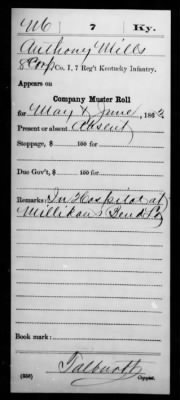 M 7 Ky.
Anthony Mills
8 Corp, Co. I, 7 Reg't Kentucky Infantry.
Appears on
Company Muster Roll
for May & June, 1863.
Present or absent Absent
Stoppage, $ 100 for
Due Gov't, $ 100 for
Remarks: In Hospital at
Millikans Bend La
Book mark:
(358) Talbott
Copyist.